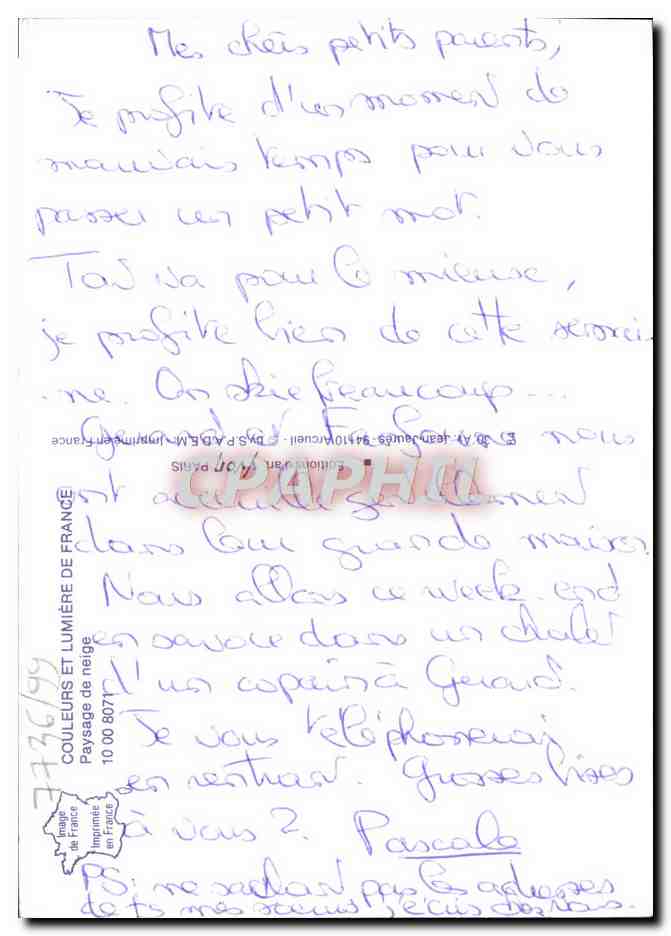 Mes chers petits parents,
Je profite d'un moment de
mauvais temps pour vous
passer un petit mot.
Tout va pour le mieux,
je profite bien de cette semai-
-ne. On skie beaucoup...
Gérard et nous
30, Av. Jean-Jaurès - 94110 Arcueil - © by S.P.A.D.E.M. - Imprimé en France
Editions d'art YVON PARIS
CPAPHIL
ont accueilli gentiment
dans leur grande maison.
Nous allons ce week-end
en savoie dans un chalet
d'un copain à Gérard.
Je vous téléphonerai
en rentrant. Grosses bises
à vous 2. Pascale
PS: ne sachant pas les adresses
de ts mes soeurs, j'écris chez vous.
COULEURS ET LUMIÈRE DE FRANCE
Paysage de neige
10 00 8071
7736/99
Image
de France
Imprimée
en France